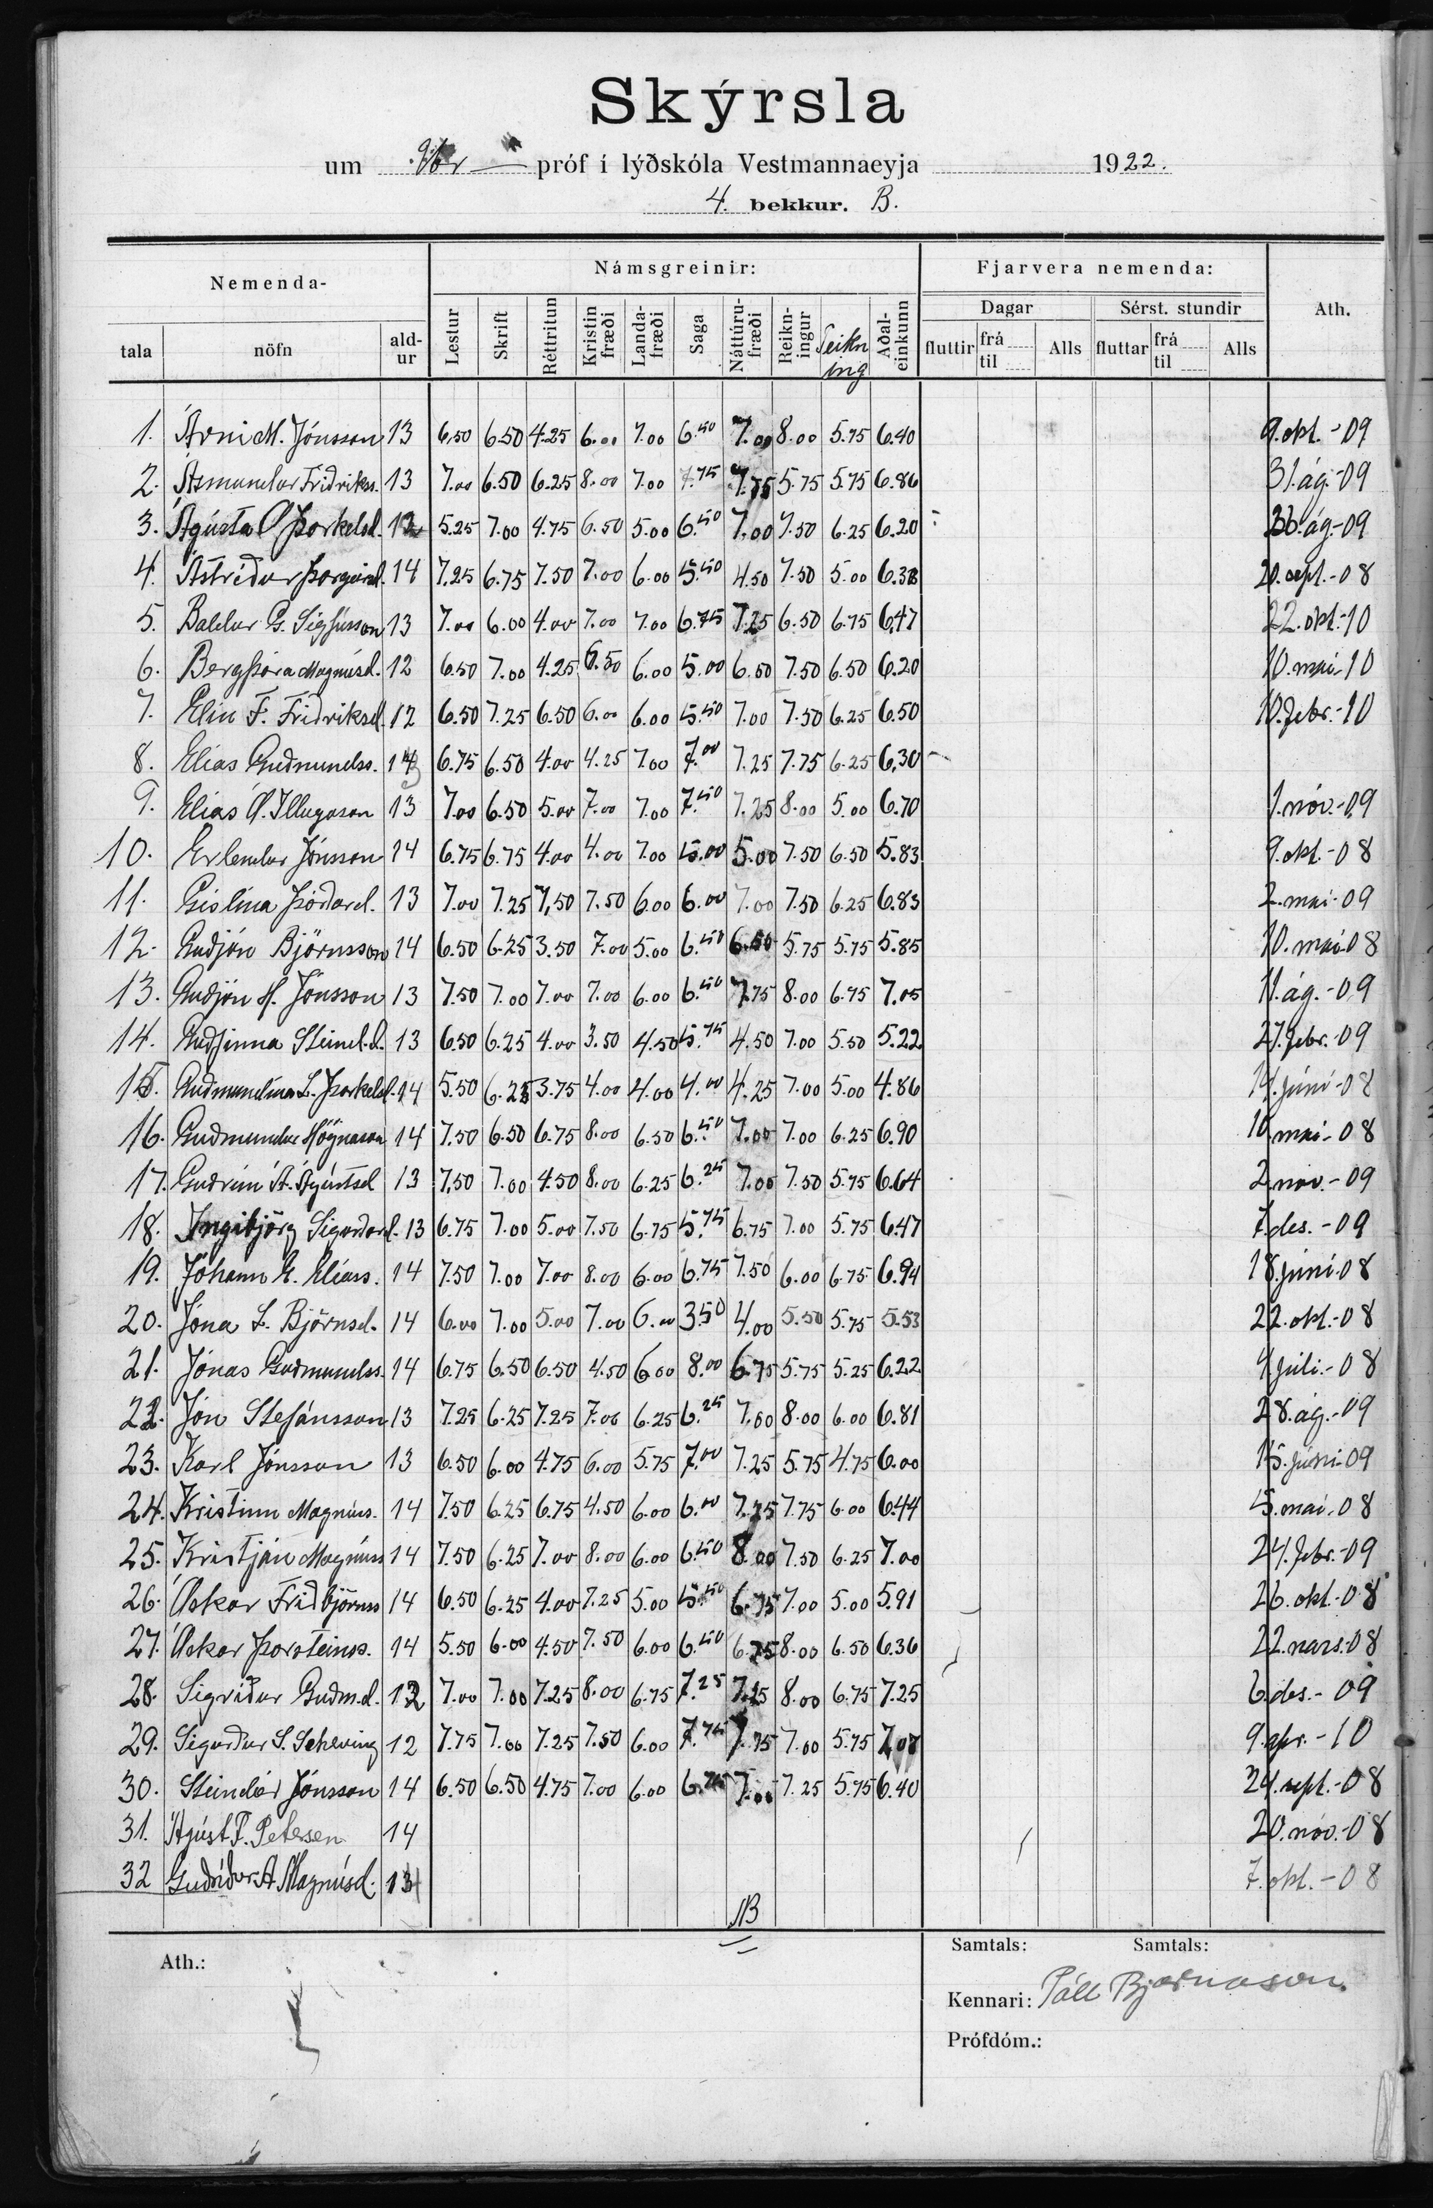 Skýrsla
um Vor próf í lýðskóla Vestmannaeyja 1922.
4. bekkur. B.
Nemenda- Námsgreinir: Fjarvera nemenda: Ath.
Dagar Sérst. stundir
tala nöfn ald-ur Lestur Skrift Réttritun Kristin fræði Landa-fræði Saga Náttúru-fræði Reikn-ingur Teikn ing Aðal-einkunn fluttir frá til Alls fluttar frá til Alls
1. Árni M. Jónsson 13 6,50 6.50 4.25 6.00 7.00 6.50 7.00 8.00 5.75 6.40 9.okt.-09
2. Ásmundur Friðrikss. 13 7.00 6.50 6.25 8.00 7.00 7.75 7.75 5.75 5.75 6.86 31.ág.-09
3. Ágústa Ó Þorkelsd. 12 5.25 7.00 4.75 6.50 5.00 6.50 7.00 7.50 6.25 6.20 ág.-09
4. Ástríður Þorgeirsd. 14 7.25 6.75 7.50 7.00 6.00 5.50 4.50 7.50 5.00 6.38 20.sept.-08
5. Baldur G. Sigfússon 13 7.00 6.00 4.00 7.00 7.00 6.75 7.25 6.50 6.75 6,47 22.okt.-10
6. Bergþóra Magnúsd. 12 6.50 7.00 4.25 6.50 6.00 5.00 6.50 7.50 6.50 6.20 10.maí-10
7. Elín F. Friðriksd. 12 6.50 7.25 6.50 6.00 6.00 5.50 7.00 7.50 6.25 6.50 10.febr.-10
8. Elías Guðmundss. 6.75 6.50 4.00 4.25 7.00 7.00 7.25 7.75 6.25 6,30
9. Elías Ó. Illugason 13 7.00 6.50 5.00 7.00 7.00 7.50 7.25 8.00 5.00 6.70 1.nóv.-09
10. Erlendur Jónsson 14 6.75 6.75 4.00 4.00 7.00 5.00 5.00 7.50 6.50 5.83 9.okt.-08
11. Gíslína Þórðard. 13 7.00 7.25 7,50 7.50 6.00 6.00 7.00 7.50 6.25 6.83 2.maí-09
12. Guðjón Björnsson 14 6.50 6.25 3.50 7.00 5.00 6.50 6.50 5.75 5.75 5.85 10.maí-08
13. Guðjón H. Jónsson 13 7.50 7.00 7.00 7.00 6.00 6.50 7.75 8.00 6.75 7.05 11.ág.-09
14. Guðfinna Steind.d. 13 6.50 6.25 4.00 3.50 4.50 5.75 4.50 7.00 5.50 5.22 27.febr.-09
15. Guðmundína L. Þorkelsd. 14 5.50 6.25 3.75 4.00 4.00 4.00 4.25 7.00 5.00 4.86 14.júní-08
16. Guðmundur Högnason 14 7.50 6.50 6.75 8.00 6.50 6.50 7.00 7.00 6.25 6.90 10.maí-08
17. Guðrún Á. Ágústsd 13 7,50 7.00 4.50 8.00 6.25 6.25 7.00 7.50 5.75 6.64 2.nóv.-09
18. Ingibjörg Sigurðard. 13 6.75 7.00 5.00 7.50 6.75 5.75 6.75 7.00 5.75 6.47 7.des.-09
19. Jóhann E. Elíass. 14 7.50 7.00 7.00 8.00 6.00 6.75 7.50 6.00 6.75 6.94 18.júní-08
20. Jóna L. Björnsd. 14 6.00 7.00 5.00 7.00 6.00 3.50 4.00 5.50 5.75 5.53 22.okt.-08
21. Jónas Guðmundss. 14 6.75 6.50 6.50 4.50 6.00 8.00 6.75 5.75 5.25 6.22 4.júlí.-08
22. Jón Stefánsson 13 7.25 6.25 7.25 7.00 6.25 6.25 7.00 8.00 6.00 6.81 28.ág.-09
23. Karl Jónsson 13 6.50 6.00 4.75 6.00 5.75 7.00 7.25 5.75 4.75 6.00 15.júní-09
24. Kristinn Magnúss. 14 7.50 6.25 6.75 4.50 6.00 6.00 7.25 7.75 6.00 6.44 5.maí-08
25. Kristján Magnúss 14 7.50 6.25 7.00 8.00 6.00 6.50 8.00 7.50 6.25 7.00 24.febr.-09
26. Óskar Friðbjörnss 14 6.50 6.25 4.00 7.25 5.00 5.50 6.75 7.00 5.00 5.91 26.okt.-08
27. Óskar Þorsteinss. 14 5.50 6.00 4.50 7.50 6.00 6.50 6.75 8.00 6.50 6.36 22.mars.08
28. Sigríður Guðm.d. 12 7.00 7.00 7.25 8.00 6.75 7.25 7.25 8.00 6.75 7.25 6.des.-09
29. Sigurður S. Scheving 12 7.75 7.00 7.25 7.50 6.00 7.75 7.75 7.00 5.75 7,08 9.apr.-10
30. Steindór Jónsson 14 6.50 6.50 4.75 7.00 6.00 6.75 7.00 7.25 5.75 6.40 24.sept.-08
31. Ágúst F. Petersen 14 20.nóv.-08
32 Guðríður A Magnúsd. 7.okt.-08
Ath.: Samtals: Samtals:
Kennari: Páll Bjarnason.
Prófdóm.: